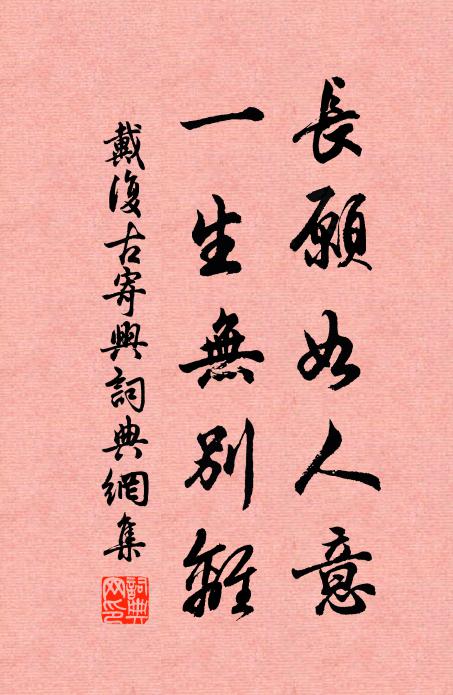 長願如人意
一生無別離
戴復古寄興詞典網集
詞典網印